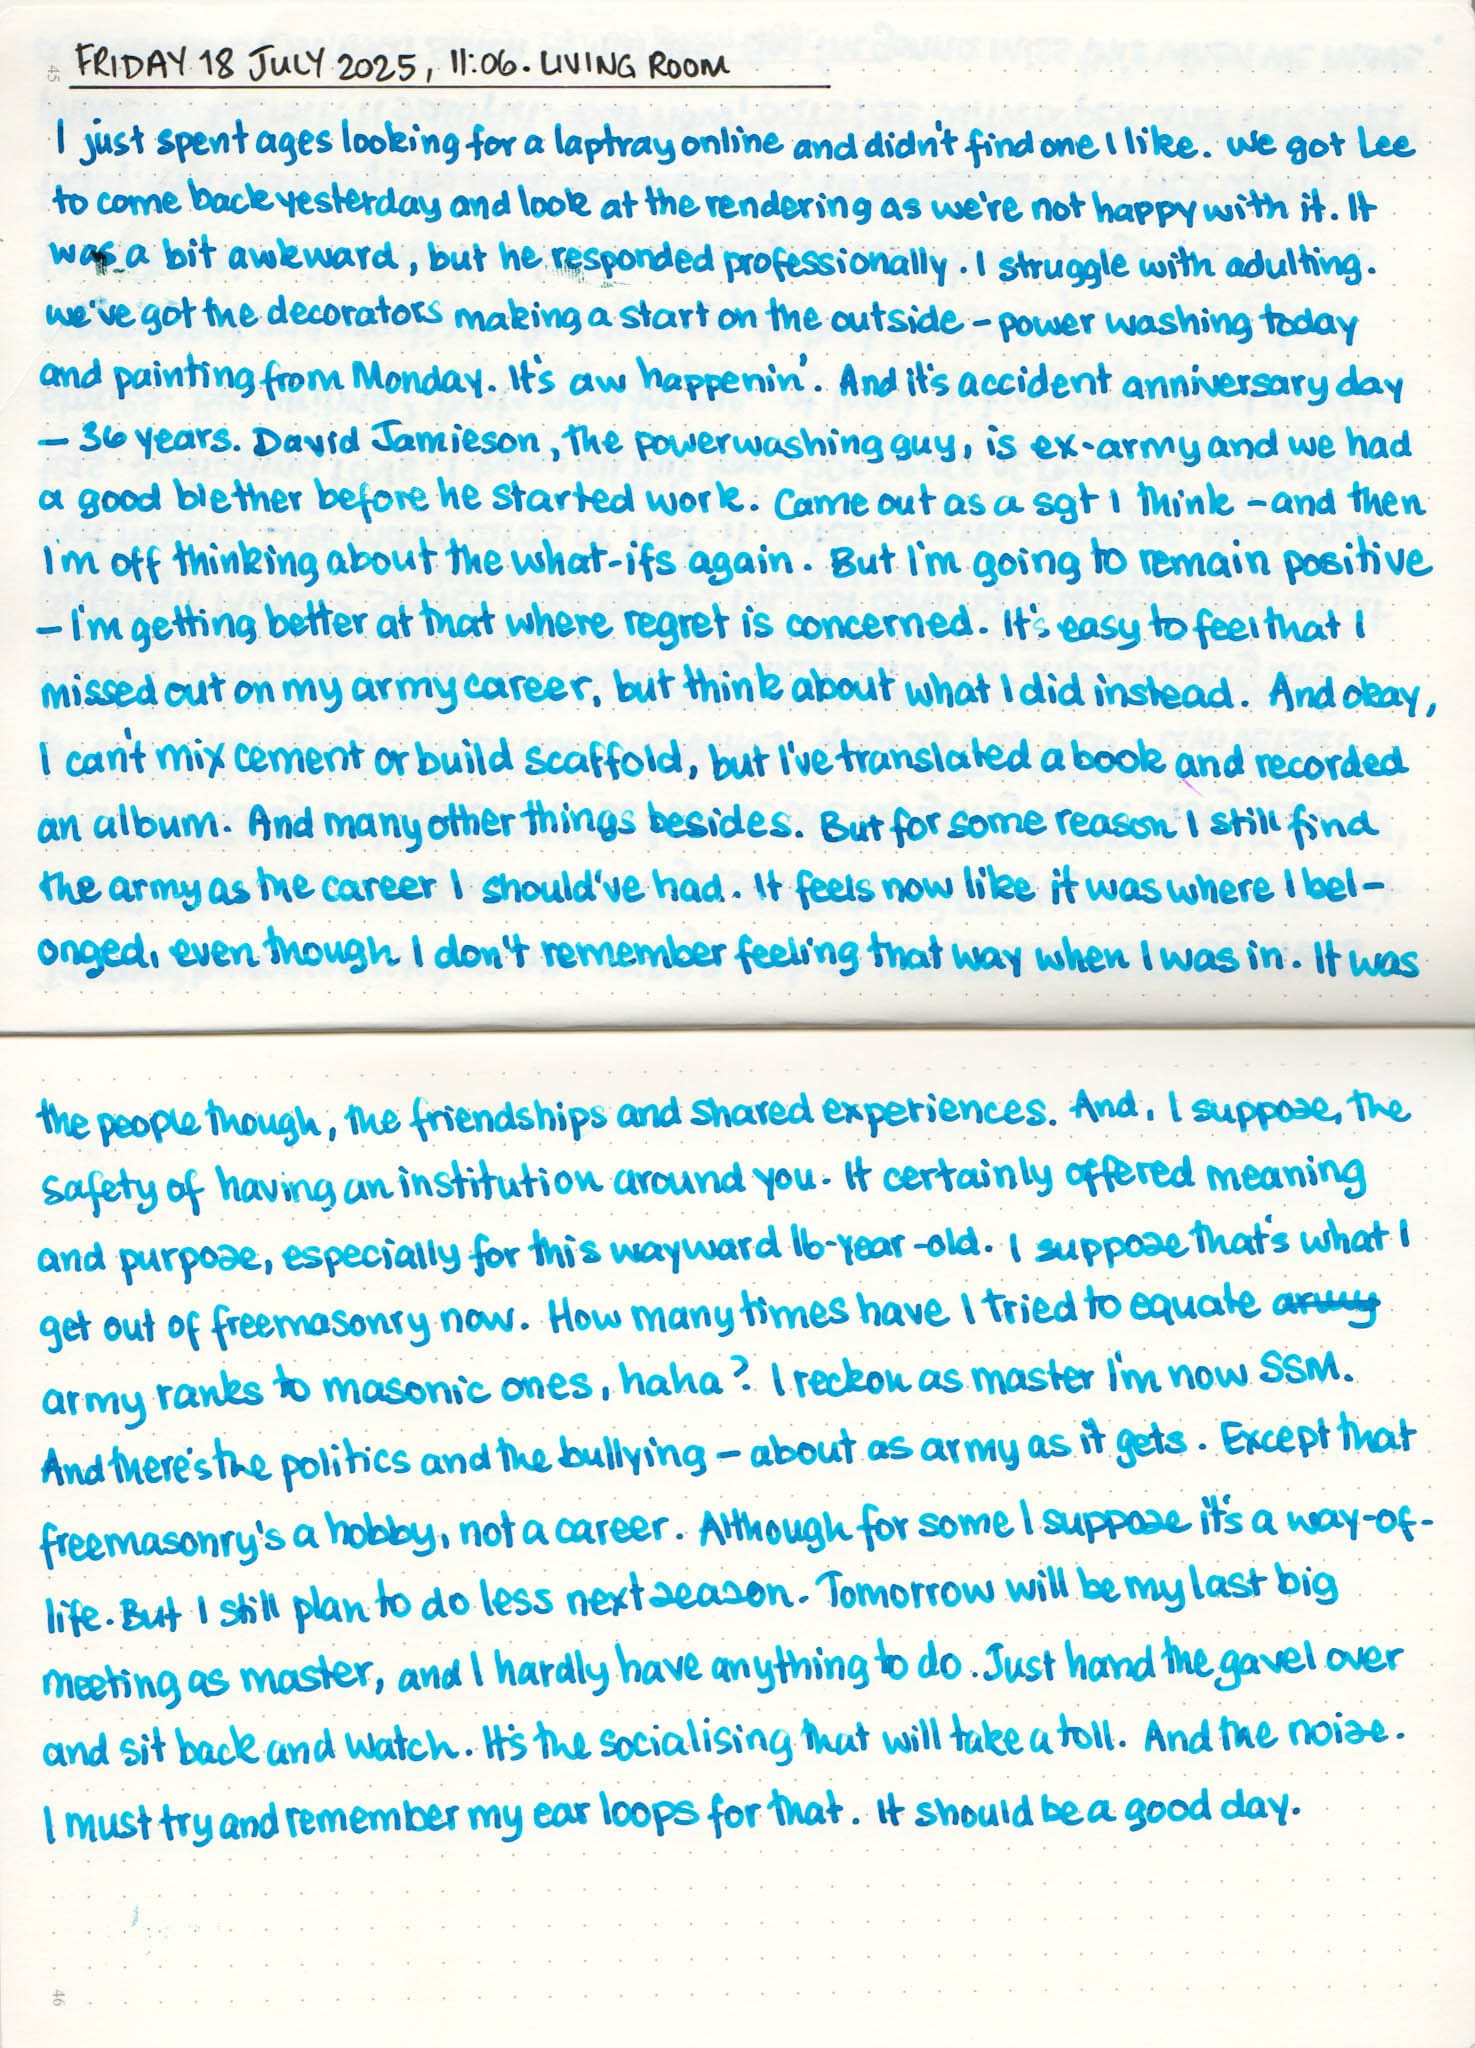 45
FRIDAY 18 JULY 2025, 11:06. LIVING ROOM
I just spent ages looking for a laptray online and didn't find one I like. We got Lee
to come back yesterday and look at the rendering as we're not happy with it. It
was a bit awkward, but he responded professionally. I struggle with adulting.
We've got the decorators making a start on the outside – power washing today
and painting from Monday. It's aw happenin'. And it's accident anniversary day
– 36 years. David Jamieson, the powerwashing guy, is ex-army and we had
a good blether before he started work. Came out as a sgt I think – and then
I'm off thinking about the what-ifs again. But I'm going to remain positive
– I'm getting better at that where regret is concerned. It's easy to feel that I
missed out on my army career, but think about what I did instead. And okay,
I can't mix cement or build scaffold, but I've translated a book and recorded
an album. And many other things besides. But for some reason I still find
the army as the career I should've had. It feels now like it was where I bel-
onged, even though I don't remember feeling that way when I was in. It was
the people though, the friendships and shared experiences. And, I suppose, the
safety of having an institution around you. It certainly offered meaning
and purpose, especially for this wayward 16-year-old. I suppose that's what I
get out of freemasonry now. How many times have I tried to equate army
army ranks to masonic ones, haha? I reckon as master I'm now SSM.
And there's the politics and the bullying – about as army as it gets. Except that
freemasonry's a hobby, not a career. Although for some I suppose it's a way-of-
life. But I still plan to do less next season. Tomorrow will be my last big
meeting as master, and I hardly have anything to do. Just hand the gavel over
and sit back and watch. It's the socialising that will take a toll. And the noise.
I must try and remember my ear loops for that. It should be a good day.
46